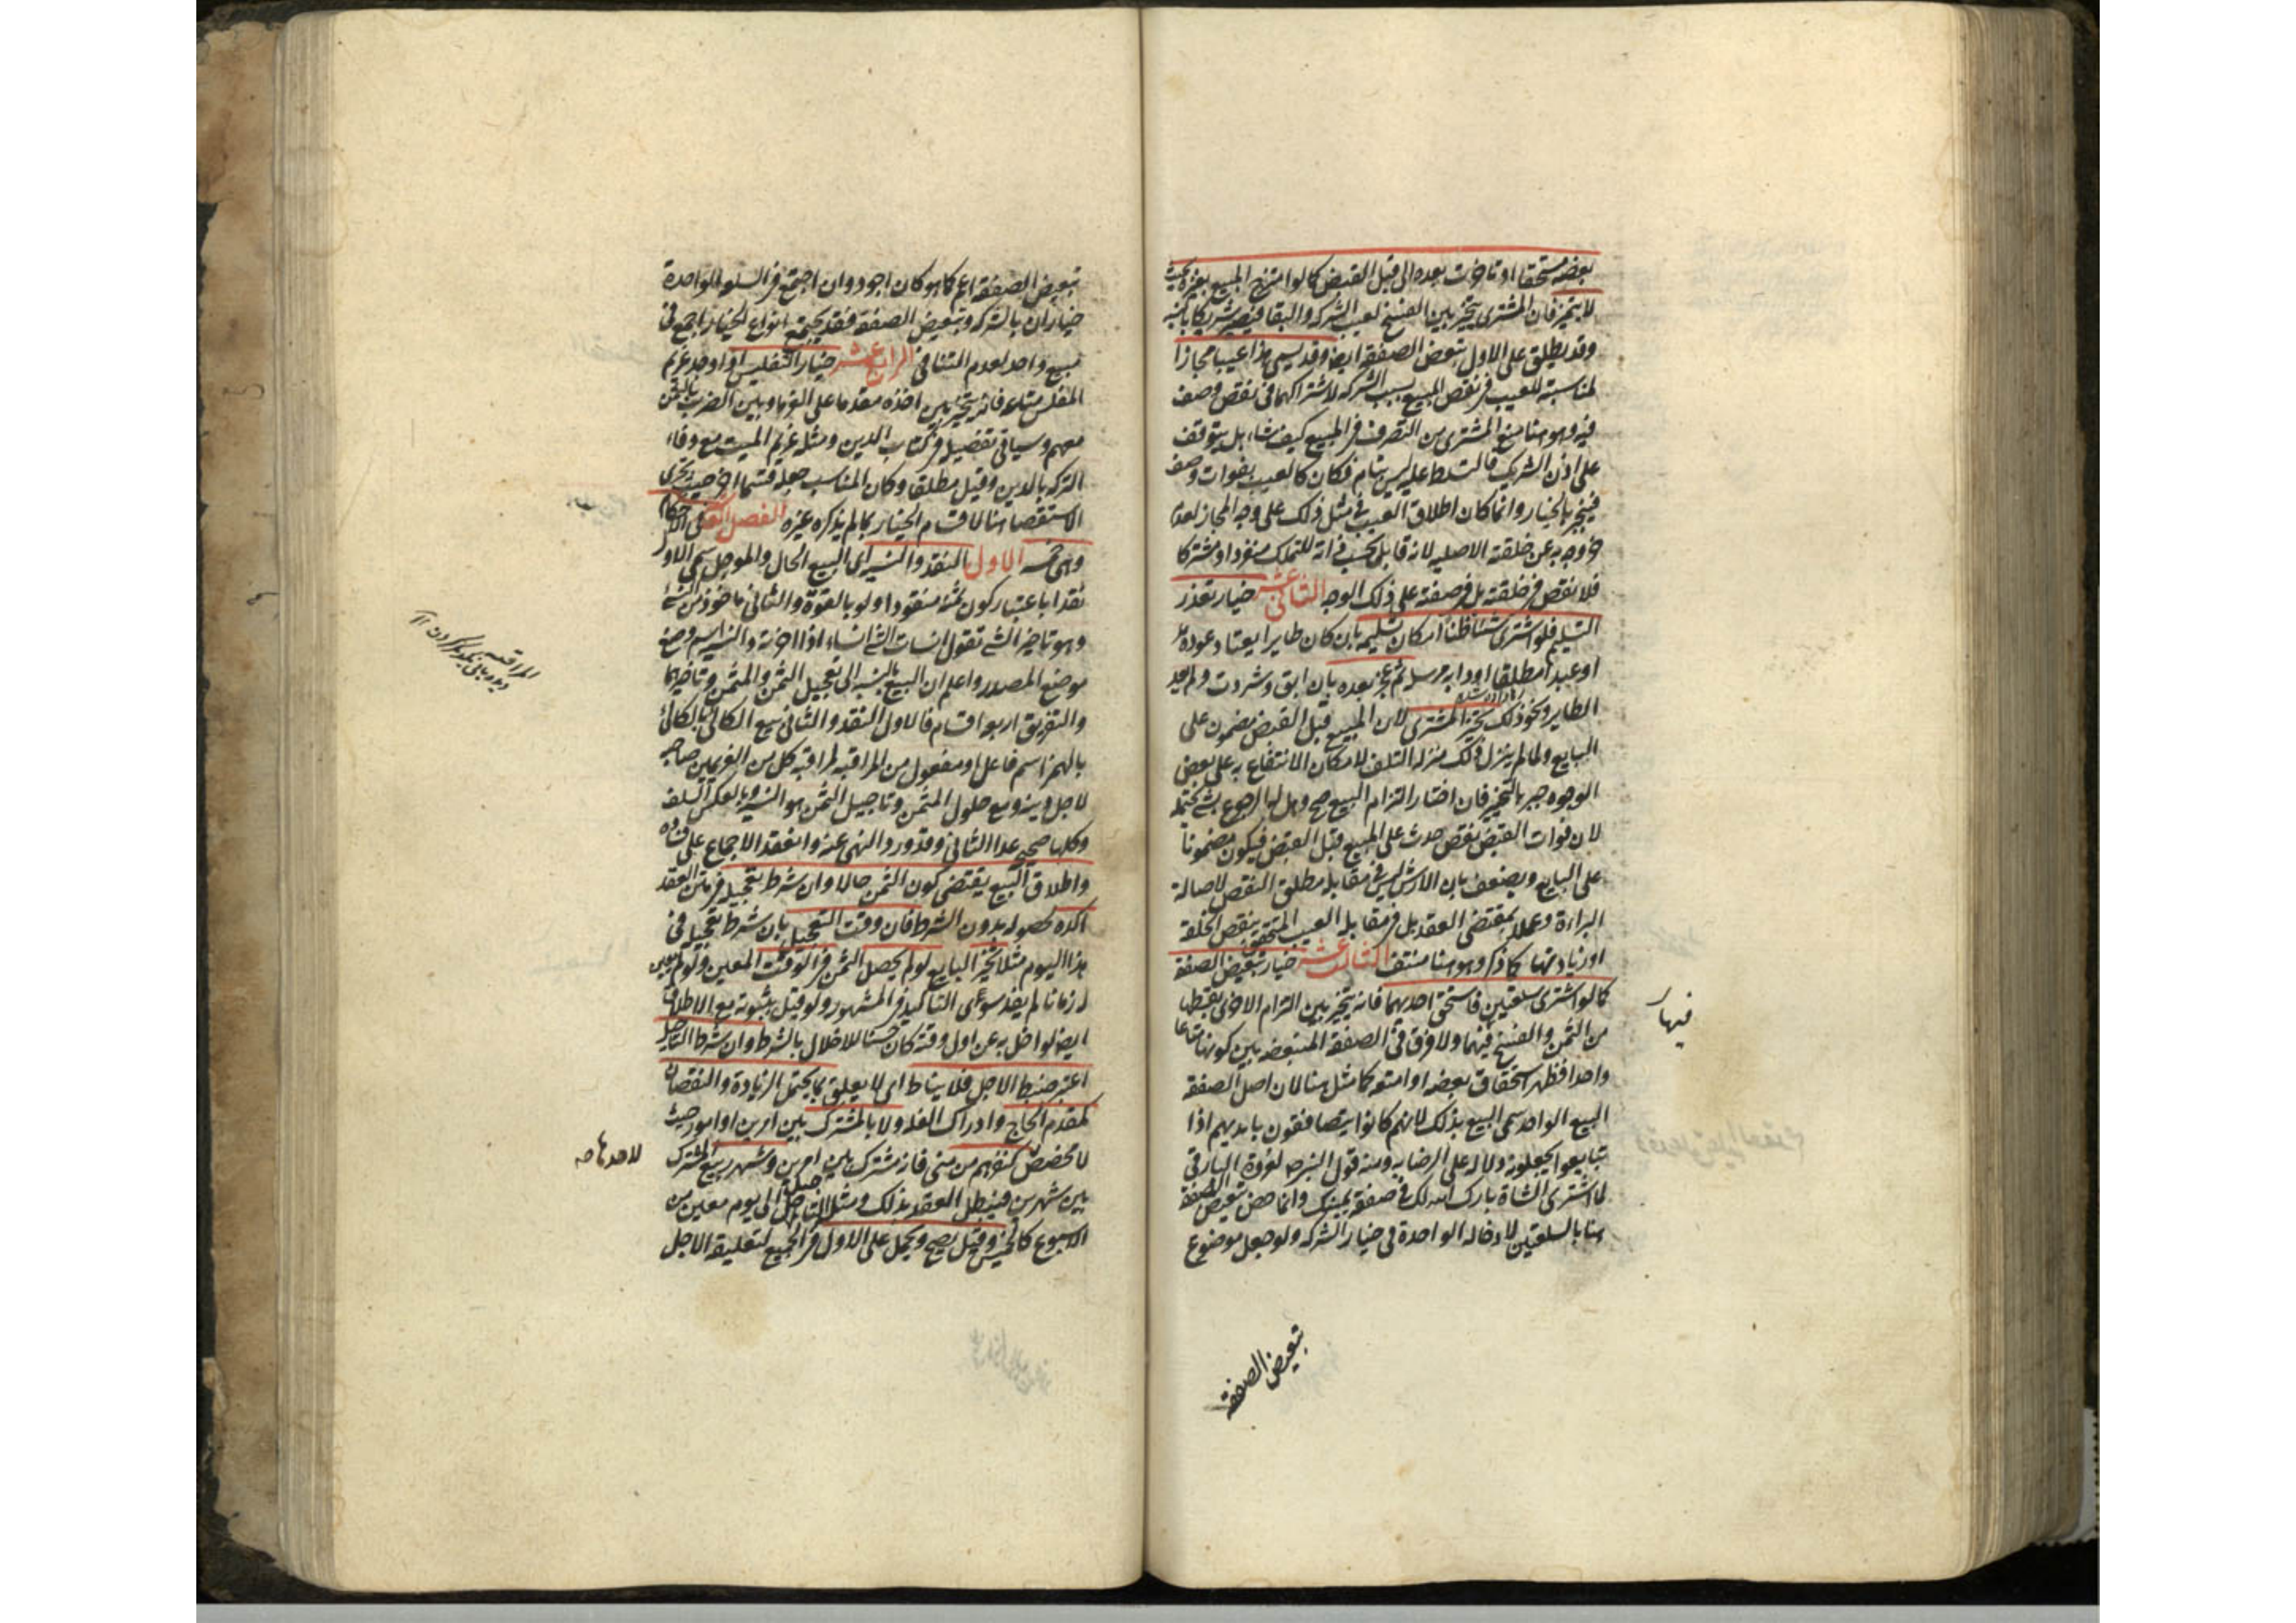 بعضه مستحقا او تاخرت بعده الى قبل القبض كما لو امتزج المبيع بغيره بحيث
لا يتميز فان المشترى يتخير بين الفسخ لعيب الشركه والبقا فيصير شريكا بالنسبه
وقد يطلق على الاول تبعض الصفقه ايضا وقد يسمى هذا عيبا مجازا
لمناسبته للعيب فى نقص المبيع بسبب الشركه لاشتراكهما فى نقص وصف
فيه وهو هنا منع المشترى من التصرف فى المبيع كيف شاء بل يتوقف
على اذن الشريك فالتسلط عليه ليس بتام فكان كالعيب بفوات وصف
فيجبر بالخيار وانما كان اطلاق العيب فى مثل ذلك على وجه المجاز لعدم
خروجه به عن خلقته الاصليه لانه قابل بحسب ذاته للتملك منفردا ومشتركا
فلا نقص فى خلقته بل فى صفته على ذلك الوجه الثانى عشر خيار تعذر
التسليم فلو اشترى شيئا ظنا امكان تسليمه بان كان طايرا يعتاد عوده
او عبدا مطلقا او دابه مرسله ثم عجز بعده بان ابق وشردت ولم يعد
الطاير ونحو ذلك تخير المشترى لان المبيع قبل القبض مضمون على
البايع ولما لم ينزل ذلك منزله التلف لامكان الانتفاع به على بعض
الوجوه جبر بالتخير فان اختار التزام البيع صح وهل له الرجوع بشئ يحتمله
لان فوات القبض نقص حدث على المبيع قبل القبض فيكون مضمونا
على البايع ويضعف بان الارش ليس فى مقابله مطلق النقص لاصالة
البراءة وعملا بمقتضى العقد بل فى مقابله العيب المتحقق بنقص الخلقه
او زيادتها كما ذكر وهو هنا منتف الثالث عشر خيار تبعيض الصفقة
كما لو اشترى سلعتين فاستحق احديهما فانه يتخير بين التزام الاخرى بقسطها
من الثمن والفسخ فيهما ولا فرق فى الصفقة المتبعضه بين كونها متاعا
واحدا فظهر استحقاق بعضه او امتعه كما مثل هنا لان اصل الصفقه
البيع الواحد سمى البيع بذلك لانهم كانوا يتصافقون بايديهم اذا
تبايعوا يجعلونه دلاله على الرضا به ومنه قول النبى ص لعروة البارقى
لما اشترى الشاة بارك الله لك فى صفقة يمينك وانما خص تبعيض الصفقة
هنا بالسلعتين لادخاله الواحدة فى خيار الشركه ولو جعل موضوع
فيهار
تبعيض الصفقة
تبعيض الصفقه اعم كما هو كان اجود وان اجتمع فى السلعه الواحدة
خياران بالشركه وتبعيض الصفقه فقد يجتمع انواع الخيار اجمع فى
مبيع واحد لعدم التنافى الرابع عشر خيار التفليس اذا وجد غريم
المفلس متاعه فانه يتخير بين اخذه مقدما على الغرما وبين الضرب بالثمن
معهم وسياتى تفصيله فى كتاب الدين ومثله غريم الميت مع وفاء
التركه بالدين وقيل مطلقا وكان المناسب جعله قسما اخر حيث تحرى
الاستقصا هنا لاقسام الخيار بما لم يذكره غيره الفصل العاشر فى الاحكام
وهى خمسه الاول النقد والنسيه اى البيع الحال والموجل سمى الاول
نقدا باعتبار كون ثمنه منقودا ولو بالقوة والثانى ماخوذ من النسئ
وهو تاخير الشئ تقول انسات الشئ انساء اذا اخرته والنسيه اسم وضع
موضع المصدر واعلم ان البيع بالنسبه الى تعجيل الثمن والمثمن وتاخيرهما
والتفريق اربعه اقسام فالاول النقد والثانى بيع الكالئ بالكالئ
بالهمز اسم فاعل او مفعول من المراقبه لمراقبه كل من الغريمين صاحبه
لاجل دينه ومع حلول المثمن وتاجيل الثمن هو النسيه وبالعكس السلف
وكلها صحيح عدا الثانى وقد ورد النهى عنه وانعقد الاجماع على فساده
واطلاق البيع يقتضى كون الثمن حالا وان شرط تعجيله فى متن العقد
اكده لحصوله بدون الشرط فان وقت التعجيل بان شرط تعجيله فى
هذا اليوم مثلا تخير البايع لو لم يحصل الثمن فى الوقت المعين ولو لم يعين
له زمانا لم يفد سوى التاكيد فى المشهور ولو قيل بثبوته مع الاطلاق
ايضا لو اخل به عن اول وقته كان حسنا للاخلال بالشرط وان شرط التاجيل
اعتبر ضبط الاجل فلا يناط اى لا يعلق بما يحتمل الزيادة والنقصان
كمقدم الحاج وادراك الغله ولا بالمشترك بين امرين او امور حيث
لا مخصص كنفرهم من منى فانه مشترك بين امرين وشهر ربيع المشترك
بين شهرين فيبطل العقد بذلك ومثله التاجيل الى يوم معين من
الاسبوع كالخميس وقيل يصح ويحمل على الاول فى الجميع لتعليقه الاجل
المراقبه
لاحدهما صه